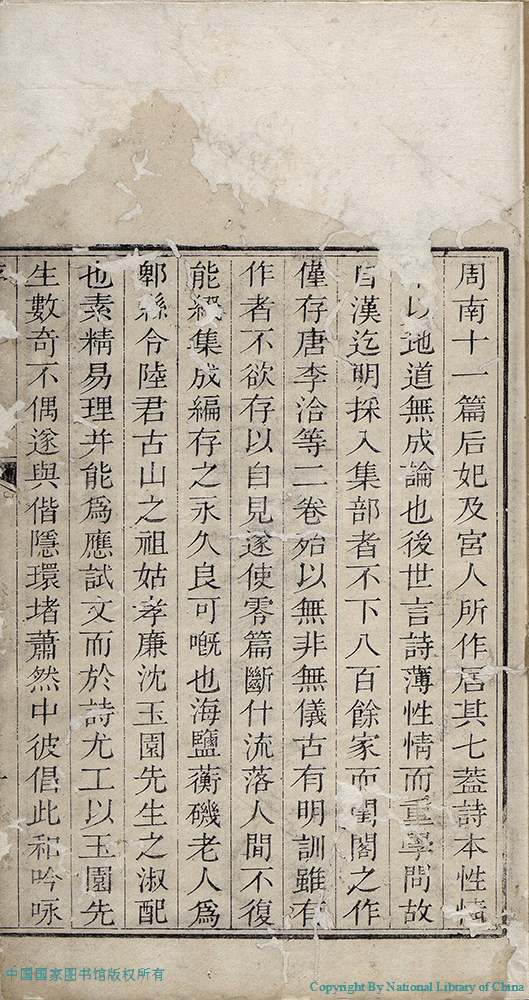 周南十一篇后妃及宮人所作居其七葢詩本性情
以地道無成論也後世言詩薄性情而重學問故
自漢迄明採入集部者不下八百餘家而閨閣之作
僅存唐李洽等二卷殆以無非無儀古有明訓雖有
作者不欲存以自見遂使零篇斷什流落人間不復
能綴集成編存之永久良可嘅也海鹽蘅磯老人爲
鄲縣令陸君古山之祖姑孝廉沈玉園先生之淑配
也素精易理并能爲應試文而於詩尤工以玉園先
生數奇不偶遂與偕隱環堵蕭然中彼倡此和吟咏
中国国家图书馆版权所有
Copyright By National Library of China